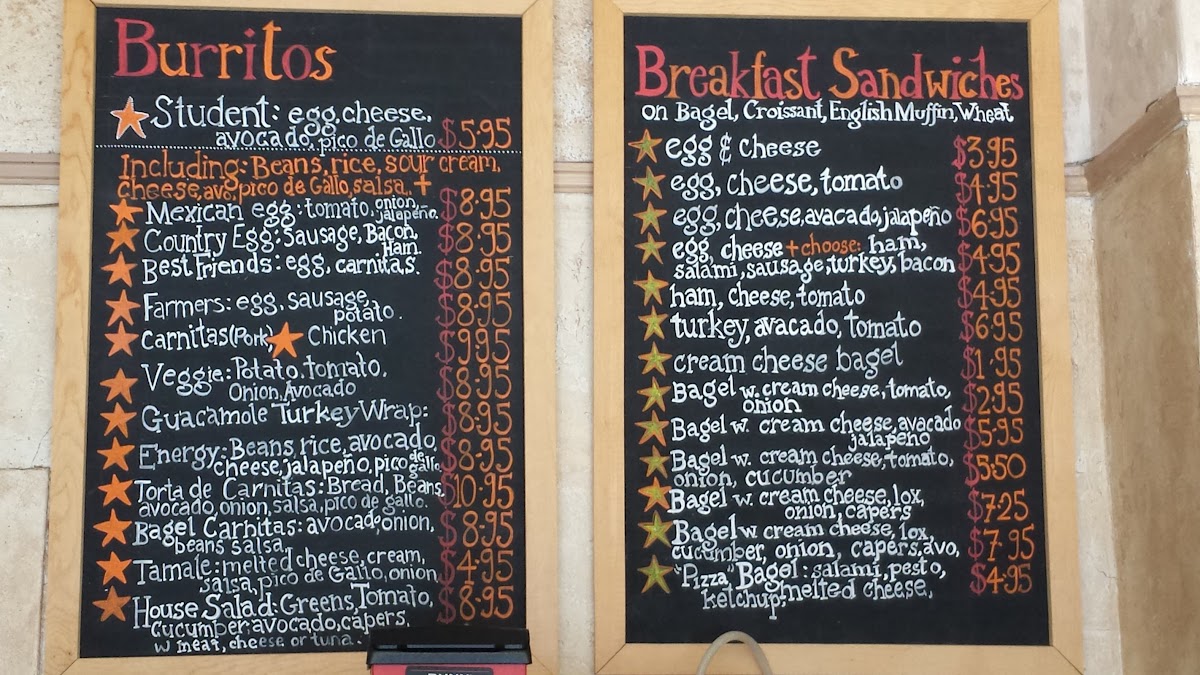 Burritos
Student: egg, cheese,
avocado, pico de Gallo $5.95
Including: Beans, rice, sour cream,
cheese, avo, pico de Gallo, salsa, +
Mexican egg: tomato, onion, jalapeño. $8.95
Country Egg: Sausage, Bacon, Ham $8.95
Best Friends: egg, carnitas. $8.95
Farmers: egg, sausage, $8.95
potato.
Carnitas (Pork) Chicken $9.95
Veggie: Potato, tomato, $8.95
Onion, Avocado
Guacamole Turkey Wrap: $8.95
Energy: Beans, rice, avocado, $8.95
cheese, jalapeño, pico de gallo
Torta de Carnitas: Bread, Beans, $10.95
avocado, onion, salsa, pico de gallo.
Bagel Carnitas: avocado, onion, $8.95
beans salsa,
Tamale: melted cheese, cream, $4.95
salsa, pico de Gallo, onion,
House Salad: Greens, Tomato, $8.95
Cucumber, avocado, capers,
w meat, cheese or tuna.
Breakfast Sandwiches
on Bagel, Croissant, English Muffin, Wheat
egg & cheese $3.95
egg, cheese, tomato $4.95
egg, cheese, avacado, jalapeño $6.95
egg, cheese + choose: ham, $4.95
salami, sausage, turkey, bacon
ham, cheese, tomato $4.95
turkey, avacado, tomato $6.95
cream cheese bagel $1.95
Bagel w. cream cheese, tomato, $2.95
onion
Bagel w. cream cheese, avacado $5.95
jalapeño
Bagel w. cream cheese, tomato, $5.50
onion, cucumber
Bagel w. cream cheese, lox, $7.25
onion, capers
Bagel w cream cheese, lox, $7.95
cucumber, onion, capers, avo,
"Pizza" Bagel: salami, pesto, $4.95
ketchup, melted cheese,